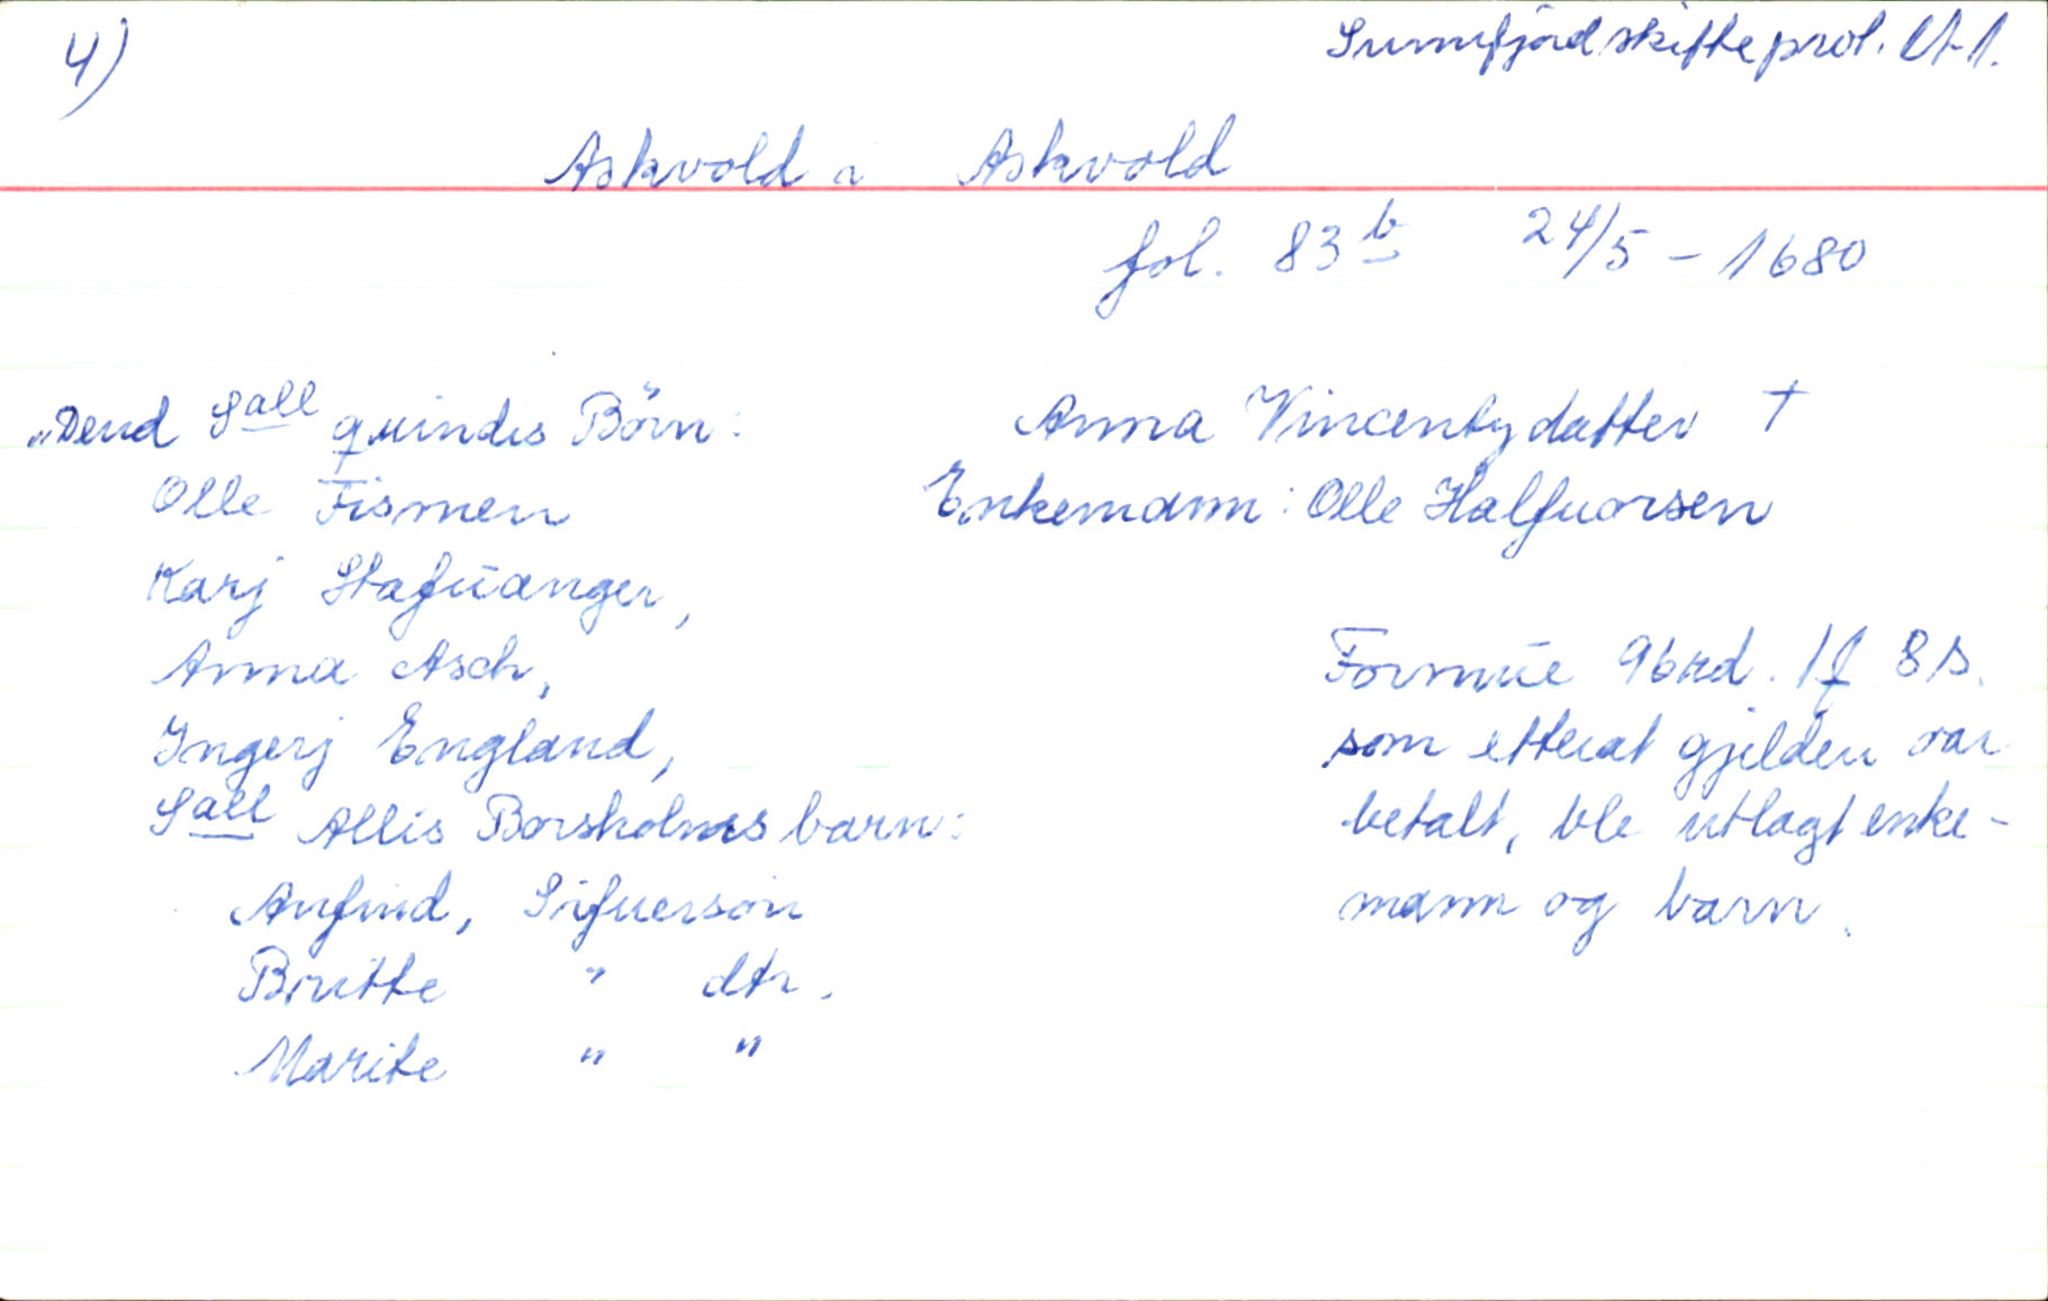 4)
Sunnfjord skifteprot. Lt 1.
Askvold i Askvold
fol. 83 b 24/5 - 1680
„Dend Sall quindis Börn:
Olle Fismen
Karj Stafuanger,
Anna Asch,
Ingerj England,
Sall Allis Borsholms barn:
Anfind, Sifuersøn
Britte " dtr.
Marite " "
Anna Vincentzdatter †
Enkemann: Olle Halfuorsen
Formue 96 rd. 1 8 s.
som etterat gjelden var
betalt, ble utlagt enke-
mann og barn.